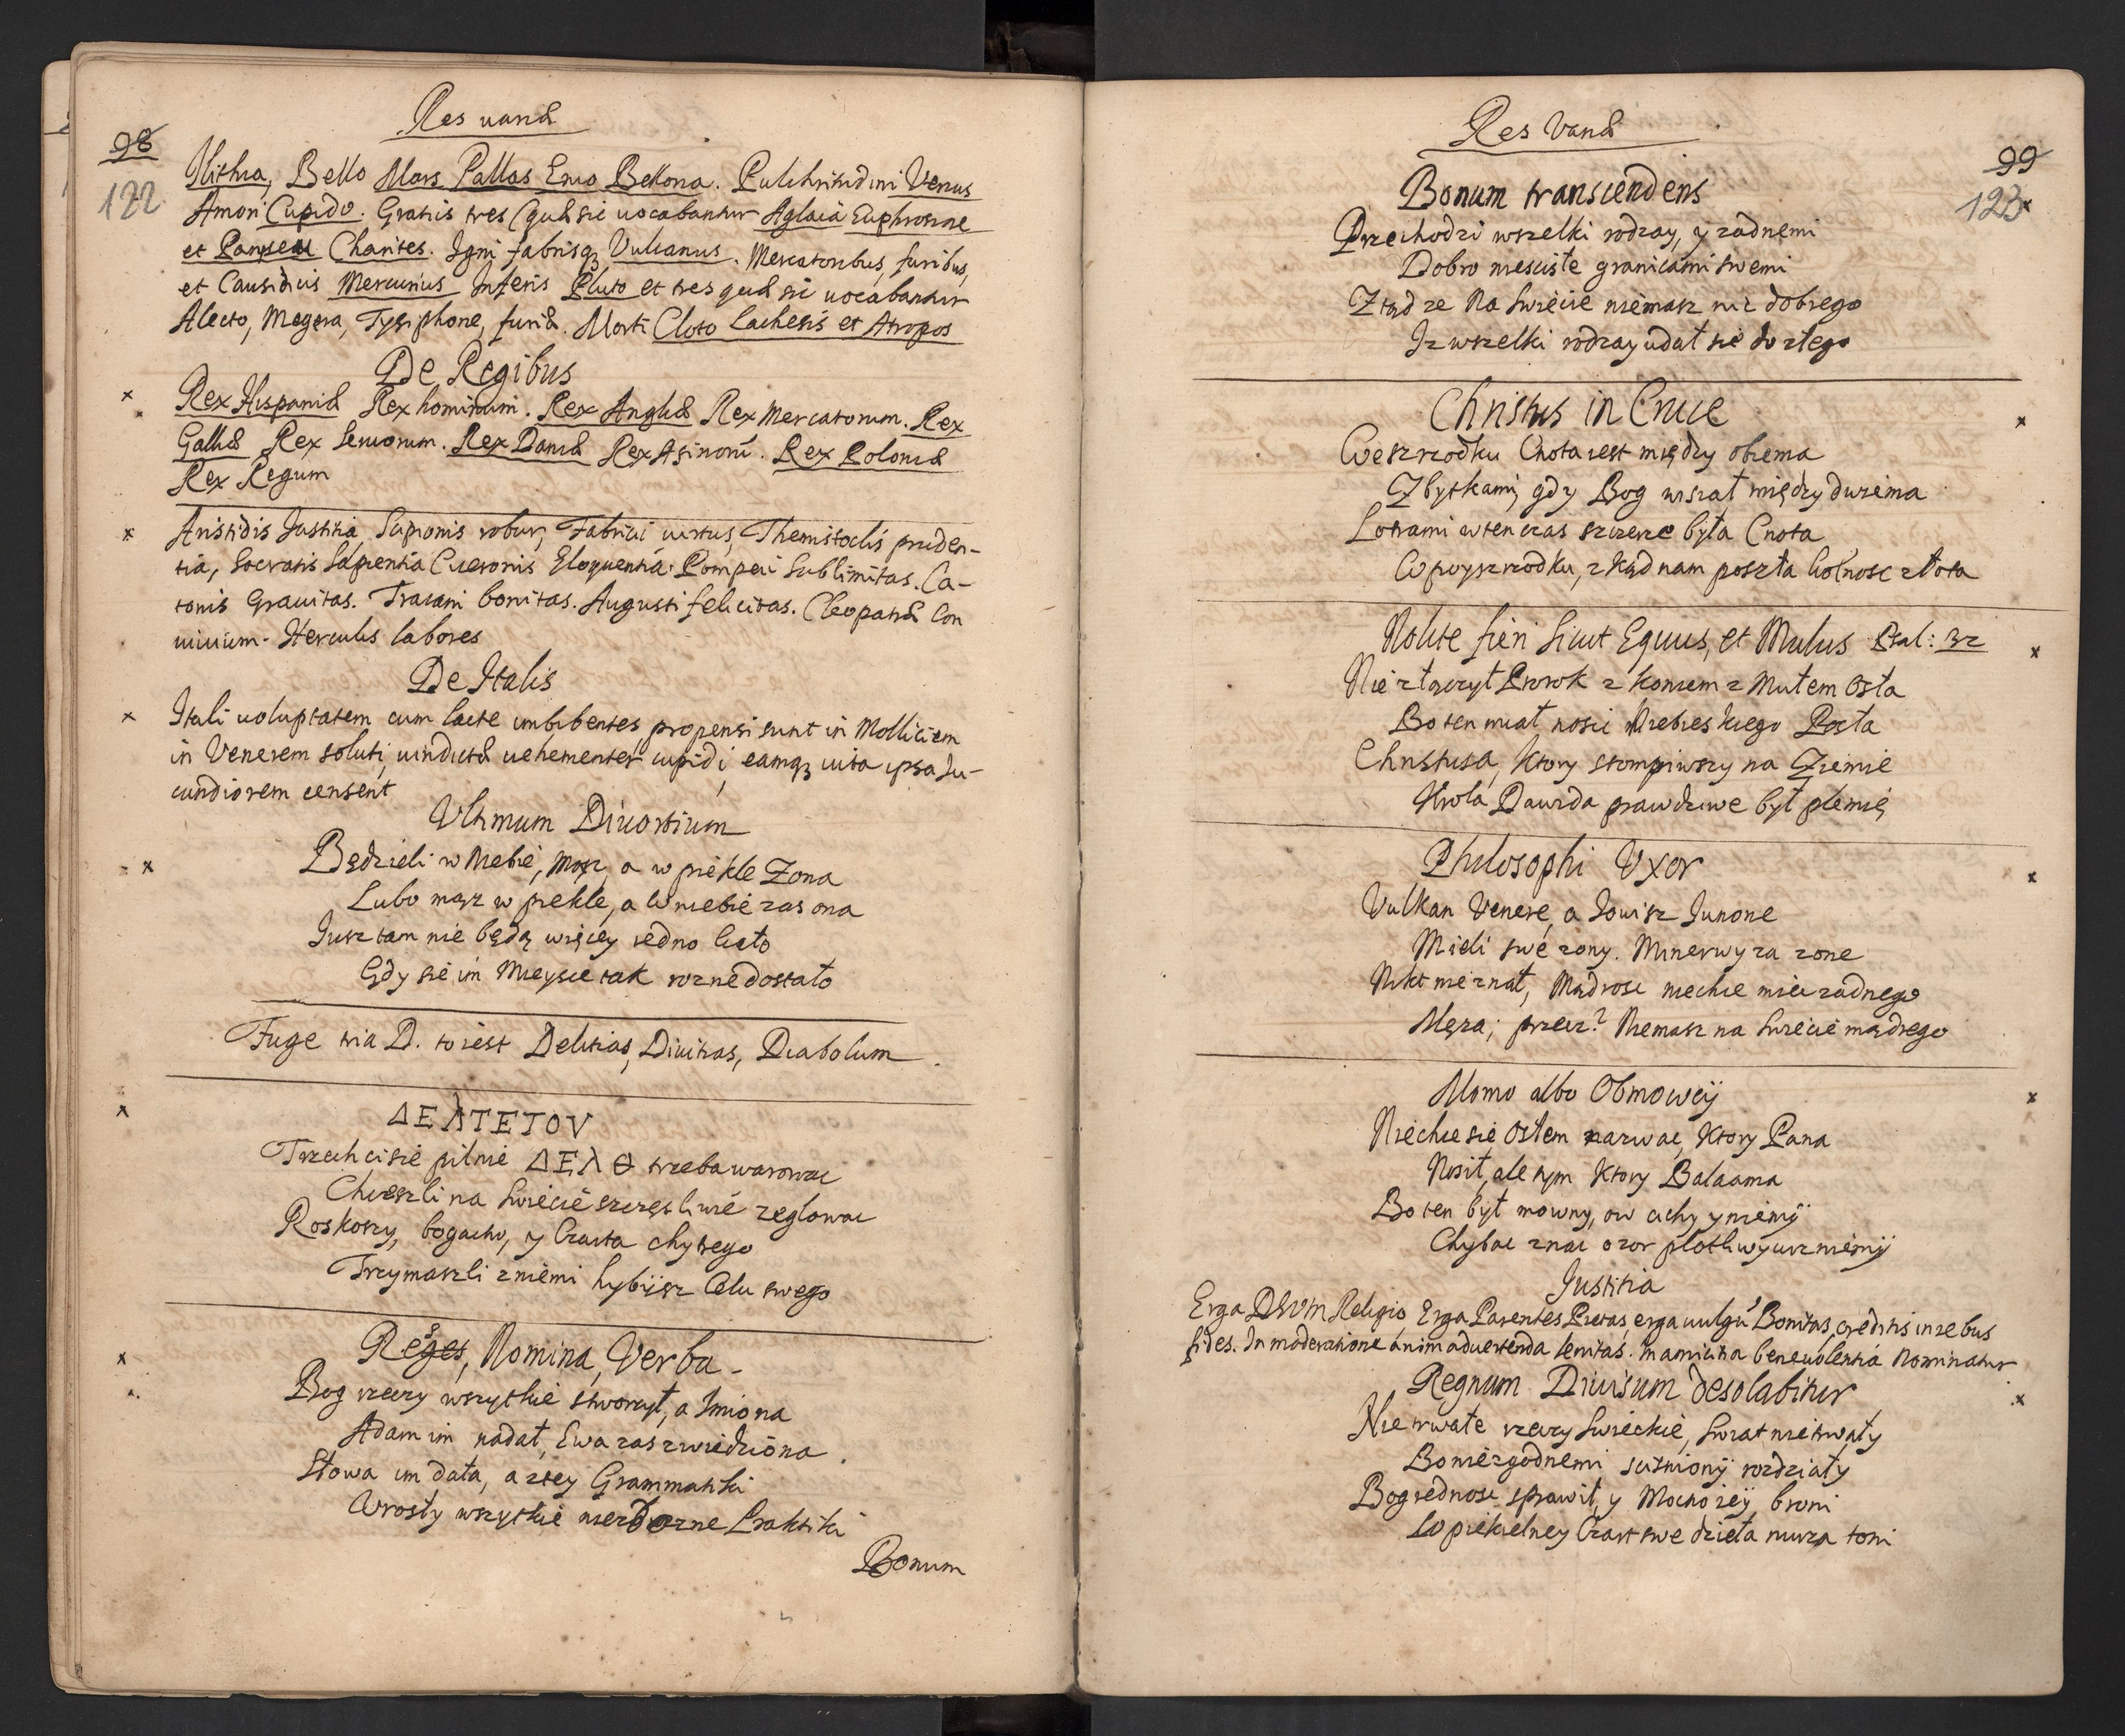 Res uariæ
98
122
Ilithia, Bello Mars Pallas Enio Bellona. Pulchritudini Venus
Amori Cupido. Gratiis tres (quæ sic uocabantur Aglaia Euphrosine
et Charites. Igni fabrisq; Vulcanus. Mercatoribus, furibus,
et Causidicis Mercurius Inferis Pluto et tres quæ sic uocabantur
Alecto, Megera, Tysiphone, furiæ. Morti Cloto Lachesis et Atropos
De Regibus
Rex Hispaniæ Rex hominum. Rex Angliæ Rex Mercatorum. Rex
Galliæ Rex Seruorum. Rex Daniæ Rex Asinorū. Rex Poloniæ
Rex Regum
Aristidis Justitia, Scipionis robur, Fabricii uirtus, Themistoclis pruden-
tia, Socratis Sapientia Ciceronis Eloquentia. Pompeii Sublimitas. Ca-
tonis Grauitas. Traiani bonitas. Augusti felicitas. Cleopatræ Con
uiuium. Herculis labores
De Italis
Itali uoluptatem cum lacte imbibentes, propensi sunt in Molliciem
in Venerem soluti, uindictæ uehementer cupidi, eamq; uita ipsa Ju-
cundiorem censent
Vltimum Diuortium
Będzieli w Niebie, mąz, a w piekle Zona
Lubo mąz w piekle, a w niebie zas ona
Jusz tam nie będą więcey iedno Ciało
Gdy się im Mieysce tak rozne dostało
Fuge tria D. to iest Delitias, Diuitias, Diabolum
ΔΕΛΤΕΤΟV
Trzech ci się pilnie ΔΕλθ trzeba warowac
Chceszli na Swiecie szczęsliwie zeglowac
Roskoszy, bogactw, y Czarta chytrego
Trzymaszli z niemi hybiisz Celu swego
Reges, Nomina, Verba
Bog rzeczy wszytkie stworzył, a Imiona
Adam im nadał, Ewa zas zwiedziona
Słowa im dała, a z tey Grammatiki
Wrosły wszytkie niezborne Praktiki
Bonum
Res Variæ
99
123
Bonum transcendens
Przechodzi wszelki rodzay, y zadnemi
Dobro niesciste granicami swemi
Ztąd ze na Swiecie niemasz nic dobrego
Iz wszelki rodzay udał się do złego
Christus in Cruce
We szrzodku Cnota iest między obiema
Zbytkami, gdy Bog wisiał między dwiema
Lotrami wtenczas szczerze była Cnota
W pwyszrzodku, zkąd nam poszła wolnosc złota
Nolite fieri Sicut Equus, et Mulus Psal: 32
Nie złączył Prorok z koniem z Mułem Osła
Bo ten miał nosic Niebieskiego Posła
Chrystusa, Ktory stompiwszy na Ziemie
Krola Dawida prawdziwe był plemię
Philosophi Vxor
Vulkan Venere, a Jowisz Junone
Mieli swe zony. Minerwy za zone
Nikt nie znał, Mądrosc niechce miec zadnego
Męza; przecz? Niemasz na Swiecie mądrego
Momo albo Obmowcy
Niechce się Osłem nazwac, Ktory Pana
Nosił, ale tym Ktory Balaama
Bo ten był mowny, ow cichy y niemÿ
Chybac znac ozor plotliwy
Justitia
Erga DEVM Religio, Erga Parentes Pietas, erga uulgū Bonitas, creditis in rebus
fides. In moderatione animaduertenda lenitas. in amicitia beneuolentia Nominatur
Regnum Diuisum desolabitur
Nie trwałe rzeczy Swieckie, Swiat nietrwały
Bo niezgodnemi rozdziały
Bog iednosc sprawił, y Mocno iey broni
W piekielney Czart swe dzieła nurza toni